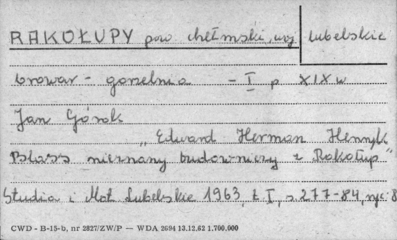 RAKOŁUPY pow chełmski, woj lubelskie
browar - gorzelnia - I p XIX w
Jan Górak
"Edward Herman Henryk
Plass nieznany budowniczy z Rakołup"
Studia i Mat. Lubelskie 1963, t. I, s. 277-84, ryc. 8
CWD - B-15-b, nr 2827/ZW/P — WDA 2694 13.12.62 1.700.000